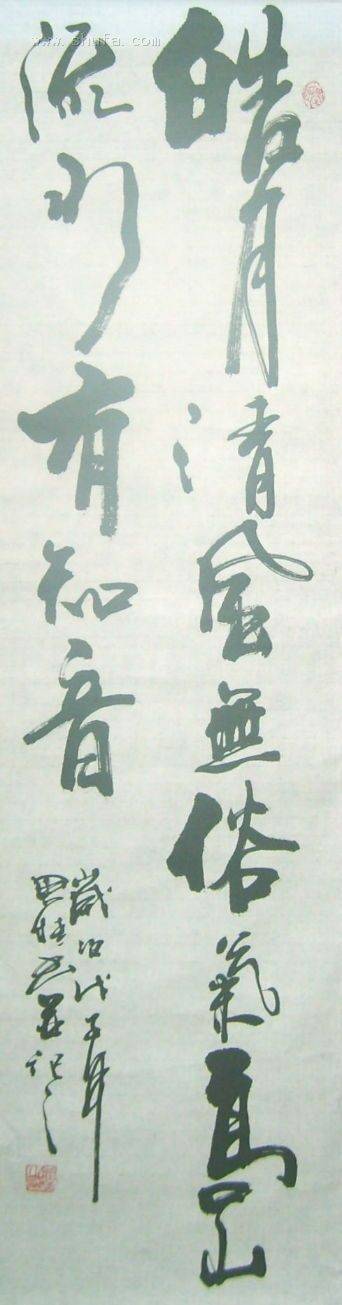 皓月清風無俗氣高山
流水有知音
歲次戊子年
shufa.com